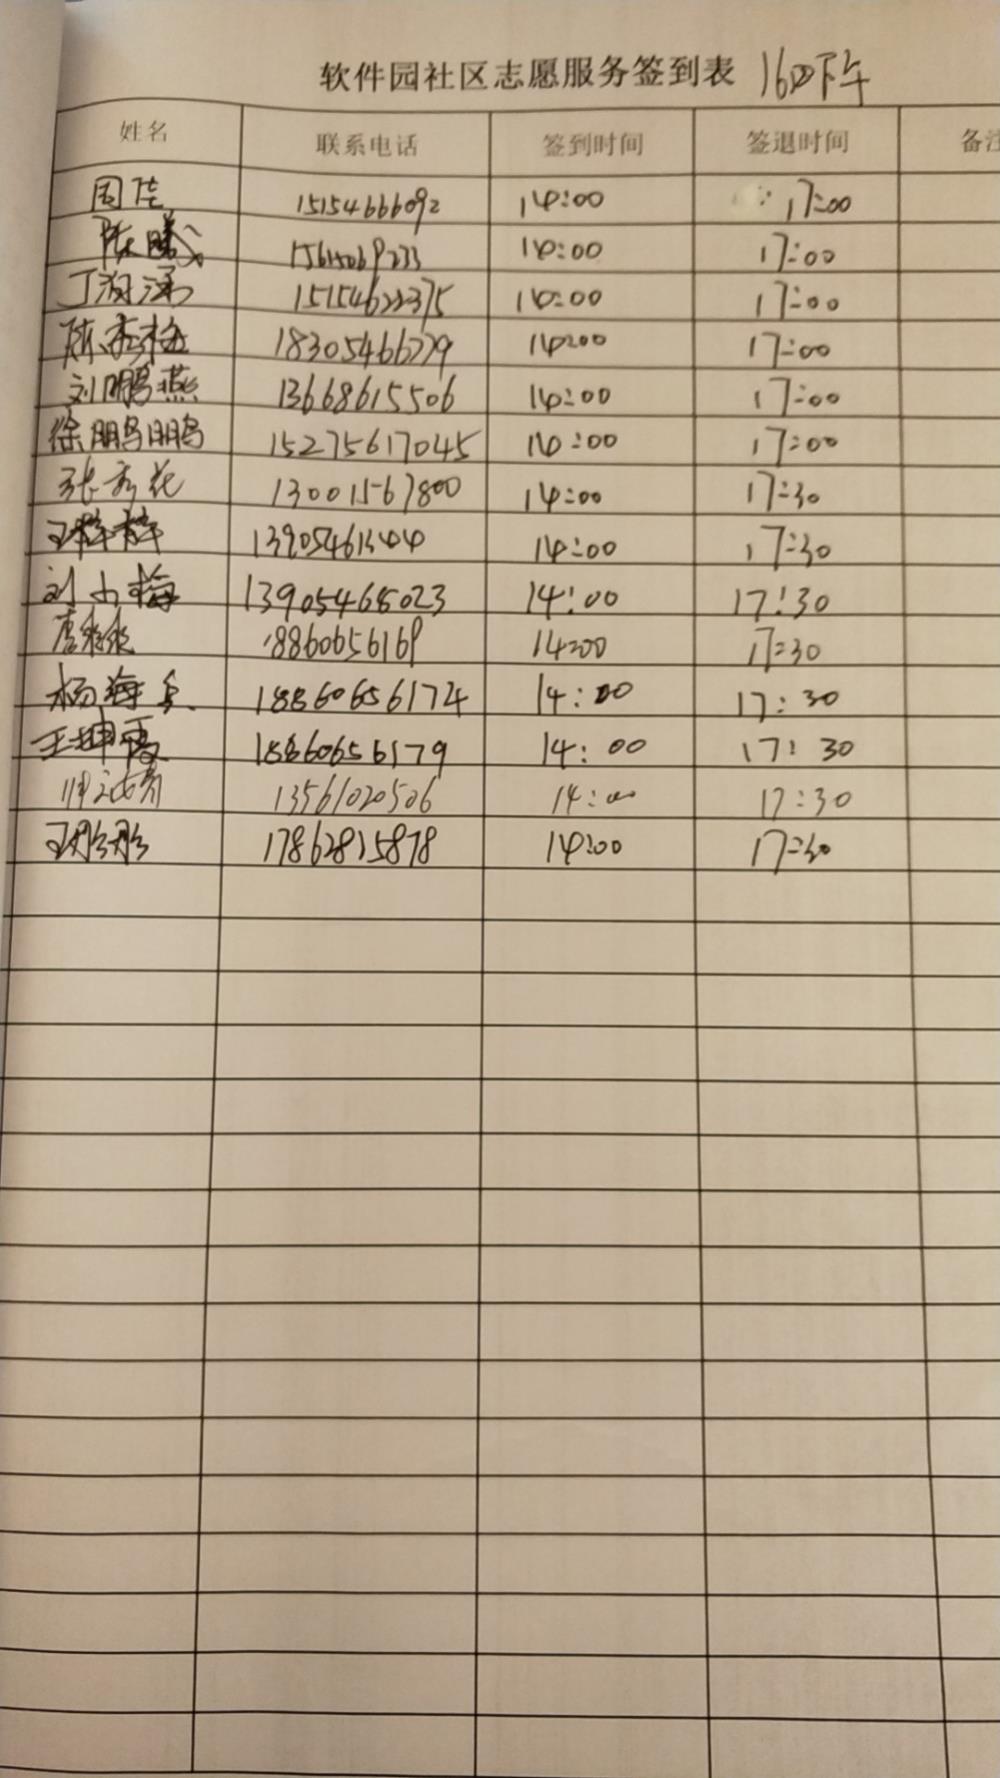 软件园社区志愿服务签到表 16日下午
姓名 联系电话 签到时间 签退时间 备注
周佳 15154666092 14:00 17:00
陈 14:00 17:00
丁 15154622375 14:00 17:00
陈 18305466779 14:00 17:00
刘鹏燕 13668615506 14:00 17:00
徐鹏鹏 15275617045 14:00 17:00
张秀花 13001567800 14:00 17:30
王梓梓 13905461344 14:00 17:30
刘小梅 13905465023 14:00 17:30
唐 18860656169 14:00 17:30
杨海兵 18860656174 14:00 17:30
王坤霞 18860656179 14:00 17:30
13561020506 14:00 17:30
王彤彤 17862815878 14:00 17:30